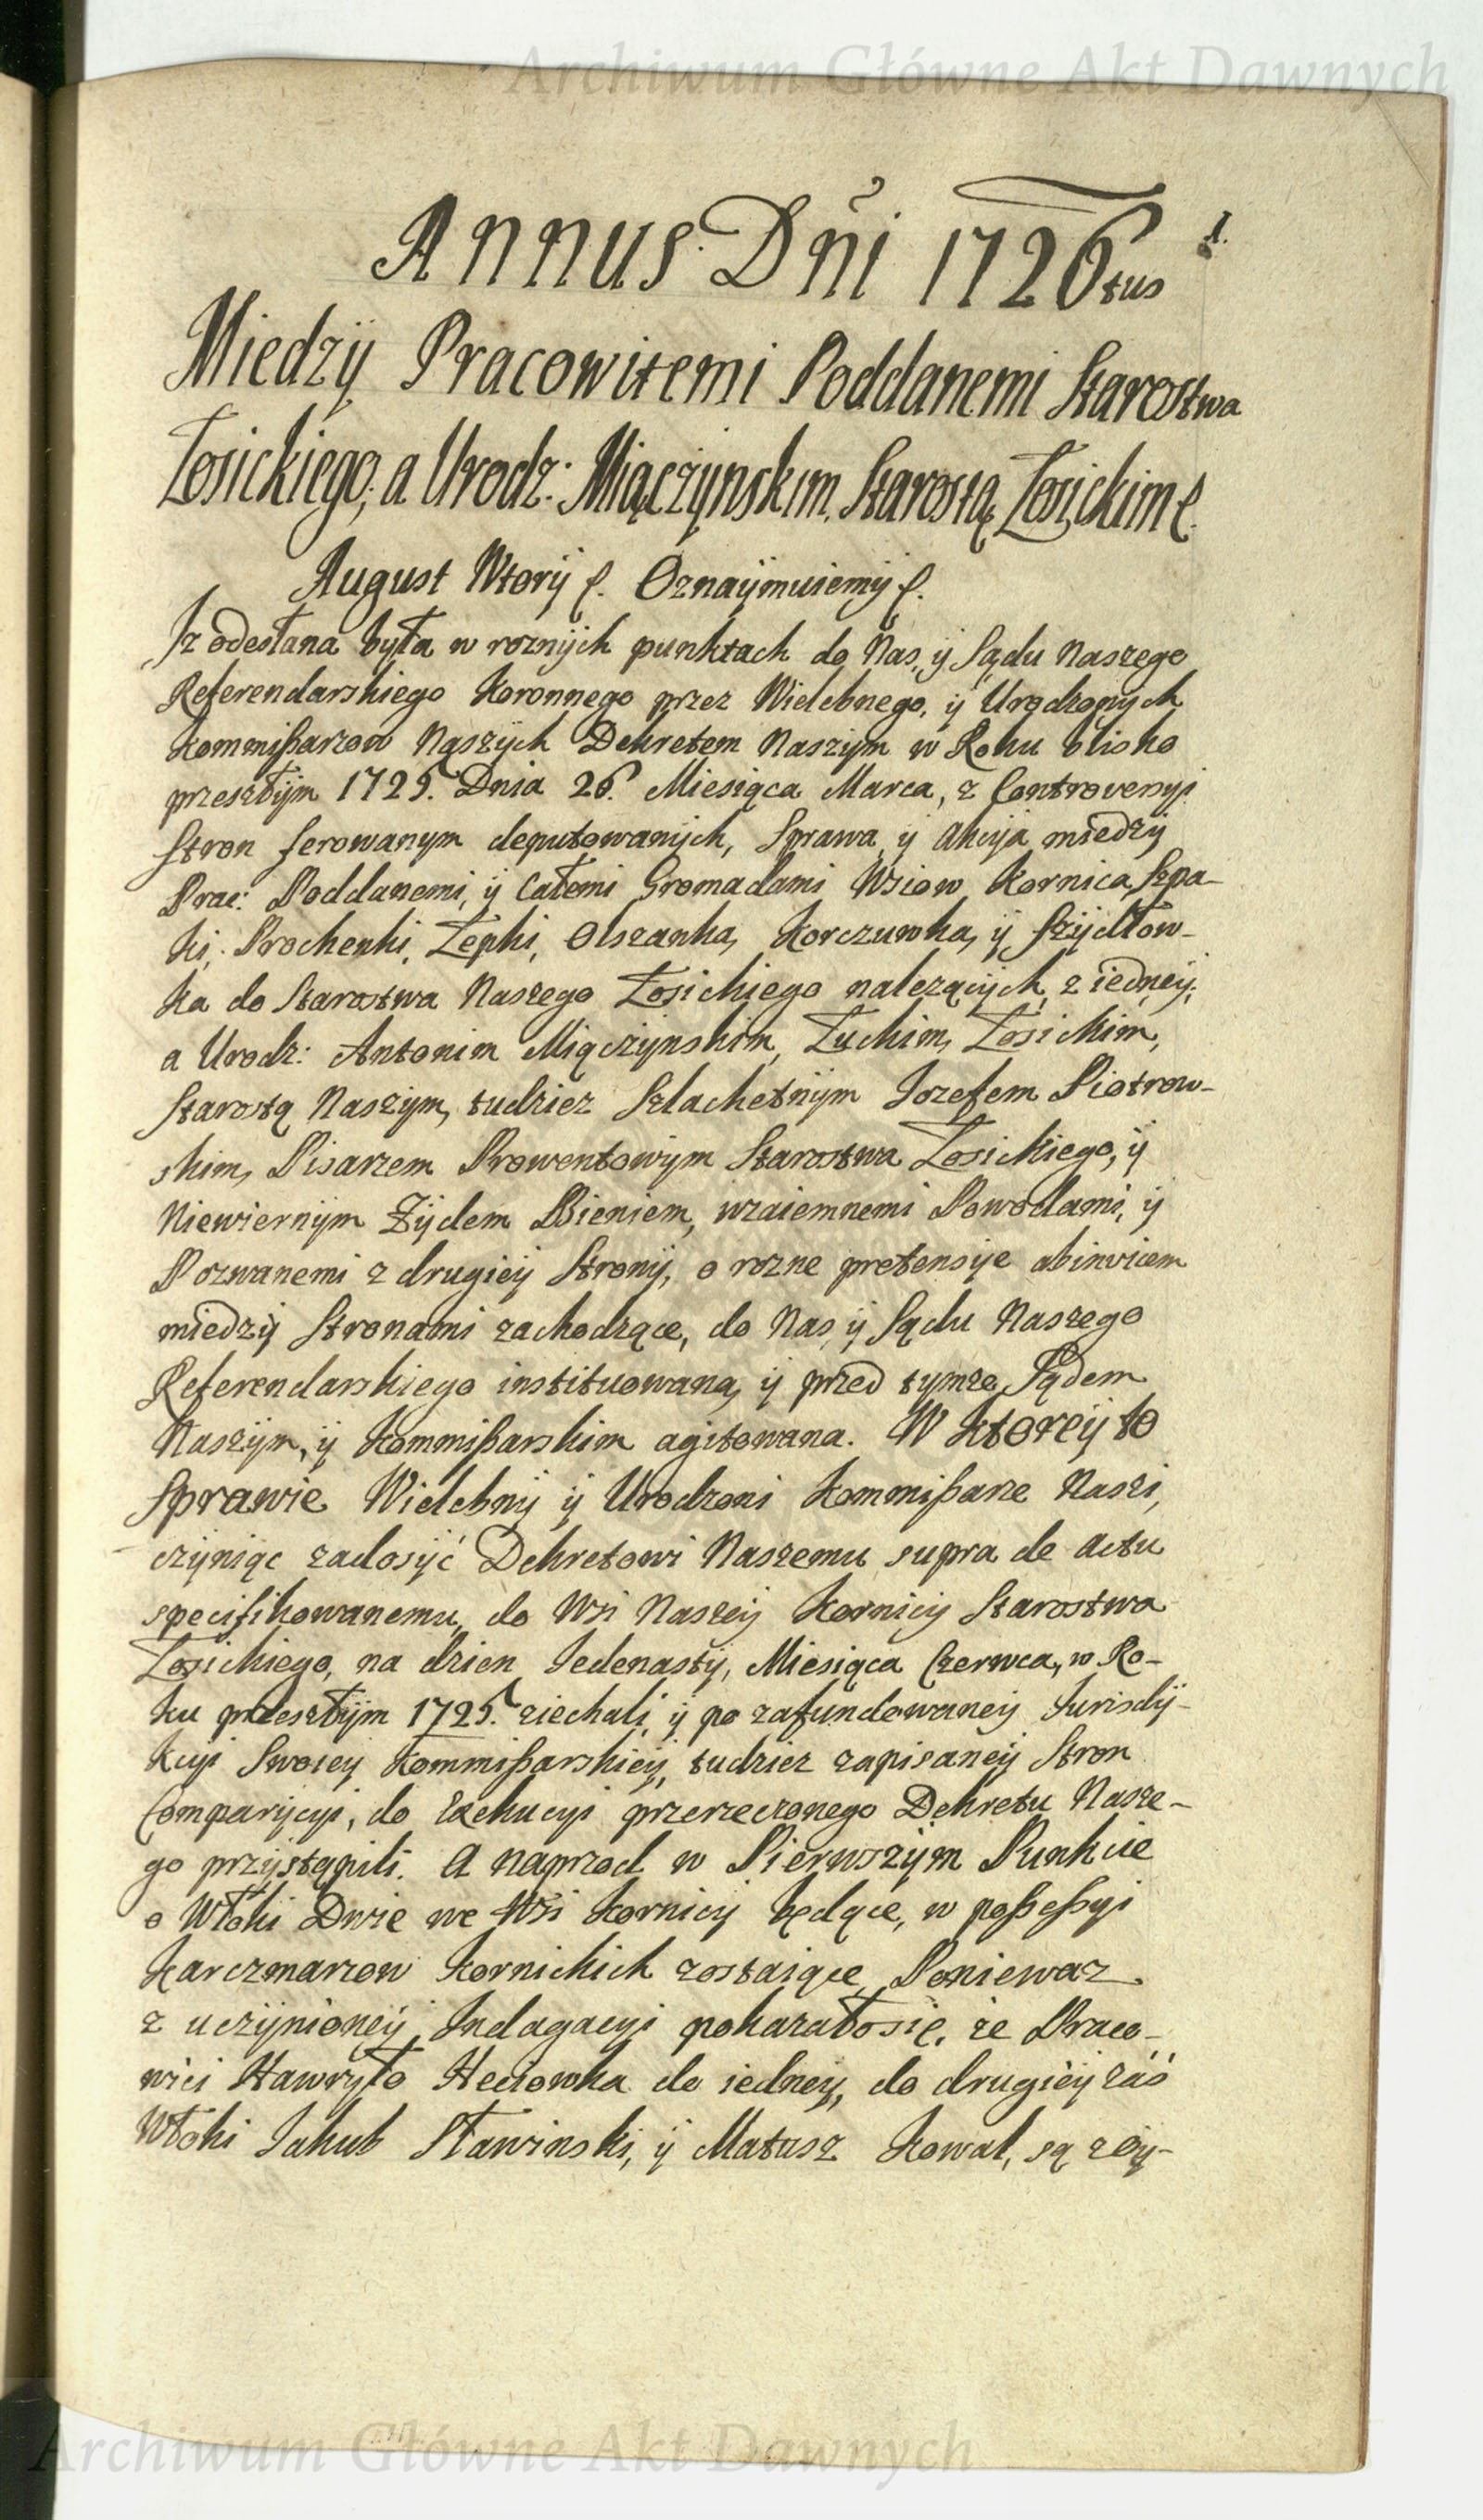 Archiwum Główne Akt Dawnych
Annus Dn̄i 1726tus
1.
Miedzÿ Pracowitemi Poddanemi Starostwa
Łosickiego, a Urodz: Miączÿnskim, Starostą Łosickim etc.
August Wtorÿ etc. Oznaÿmuiemÿ etc.
Iz odesłana była w roznÿch punktach do Nas, ÿ Sądu Naszego
Referendarskiego Koronnego przez Wielebnego, ÿ Urodzonych
Kommißarzow Naszÿch Dekretem Naszÿm w Roku blisko
przeszłÿm 1725. Dnia 26. Miesiąca Marca, z Controversyi
Stron ferowanym deputowanÿch, Sprawa, ÿ Akcÿja miedzÿ
Prac: Poddanemi, ÿ Całemi Gromadami Wsiow Kornica, Szpa-
ki, Prochenki, Łepki, Olszanka, Korczuwka, ÿ Szÿdłow-
ka do Starostwa Naszego Łosickiego nalezącÿch, z iedneÿ,
a Urodz: Antonim Miączÿnskim, Łuckim, Łosickim,
Starostą Naszÿm, tudziez Szlachetnÿm Jozefem Piotrow-
skim, Pisarzem Prowentowÿm Starostwa Łosickiego, ÿ
Niewiernÿm Żÿdem Bieniem, wzaiemnemi Powodami, ÿ
Pozwanemi z drugieÿ Stronÿ, o rozne pretensÿe abinvicem
miedzÿ Stronami zachodzące, do Nas, ÿ Sądu Naszego
Referendarskiego instituowana, ÿ przed tymze Sądem
Naszÿm, ÿ Kommißarskim agitowana. W Ktoreÿ to
Sprawie Wielebnÿ ÿ Urodzoni Kommißarze Naszi,
czÿniąc zadosÿć Dekretowi Naszemu supra de actu
specifikowanemu, do Wsi Naszeÿ Kornicÿ Starostwa
Łosickiego, na dzien Jedenastÿ, Miesiąca Czerwca, w Ro-
ku przeszłÿm 1725. ziechali, ÿ po zafundowaneÿ Jurisdÿ-
kcÿi Swoieÿ Kommißarskieÿ, tudziez zapisaneÿ Stron
Comparÿcÿi, do Exekucÿi przerzeczonego Dekretu Nasze-
go przÿstąpili. A naprzod w Pierwszÿm Punkcie
o Włoki Dwie we Wsi Kornicÿ będące, w poßeßÿi
Karczmarzow Kornickich zostaiące, Poniewaz
z uczÿnioneÿ Indagacÿi pokazałosię, ze Praco-
wici Hawryło Heciowka do iedneÿ, do drugieÿ zaś
Włoki Jakub Sławinski, ÿ Matusz Kowal, są zbÿ-
Archiwum Główne Akt Dawnych